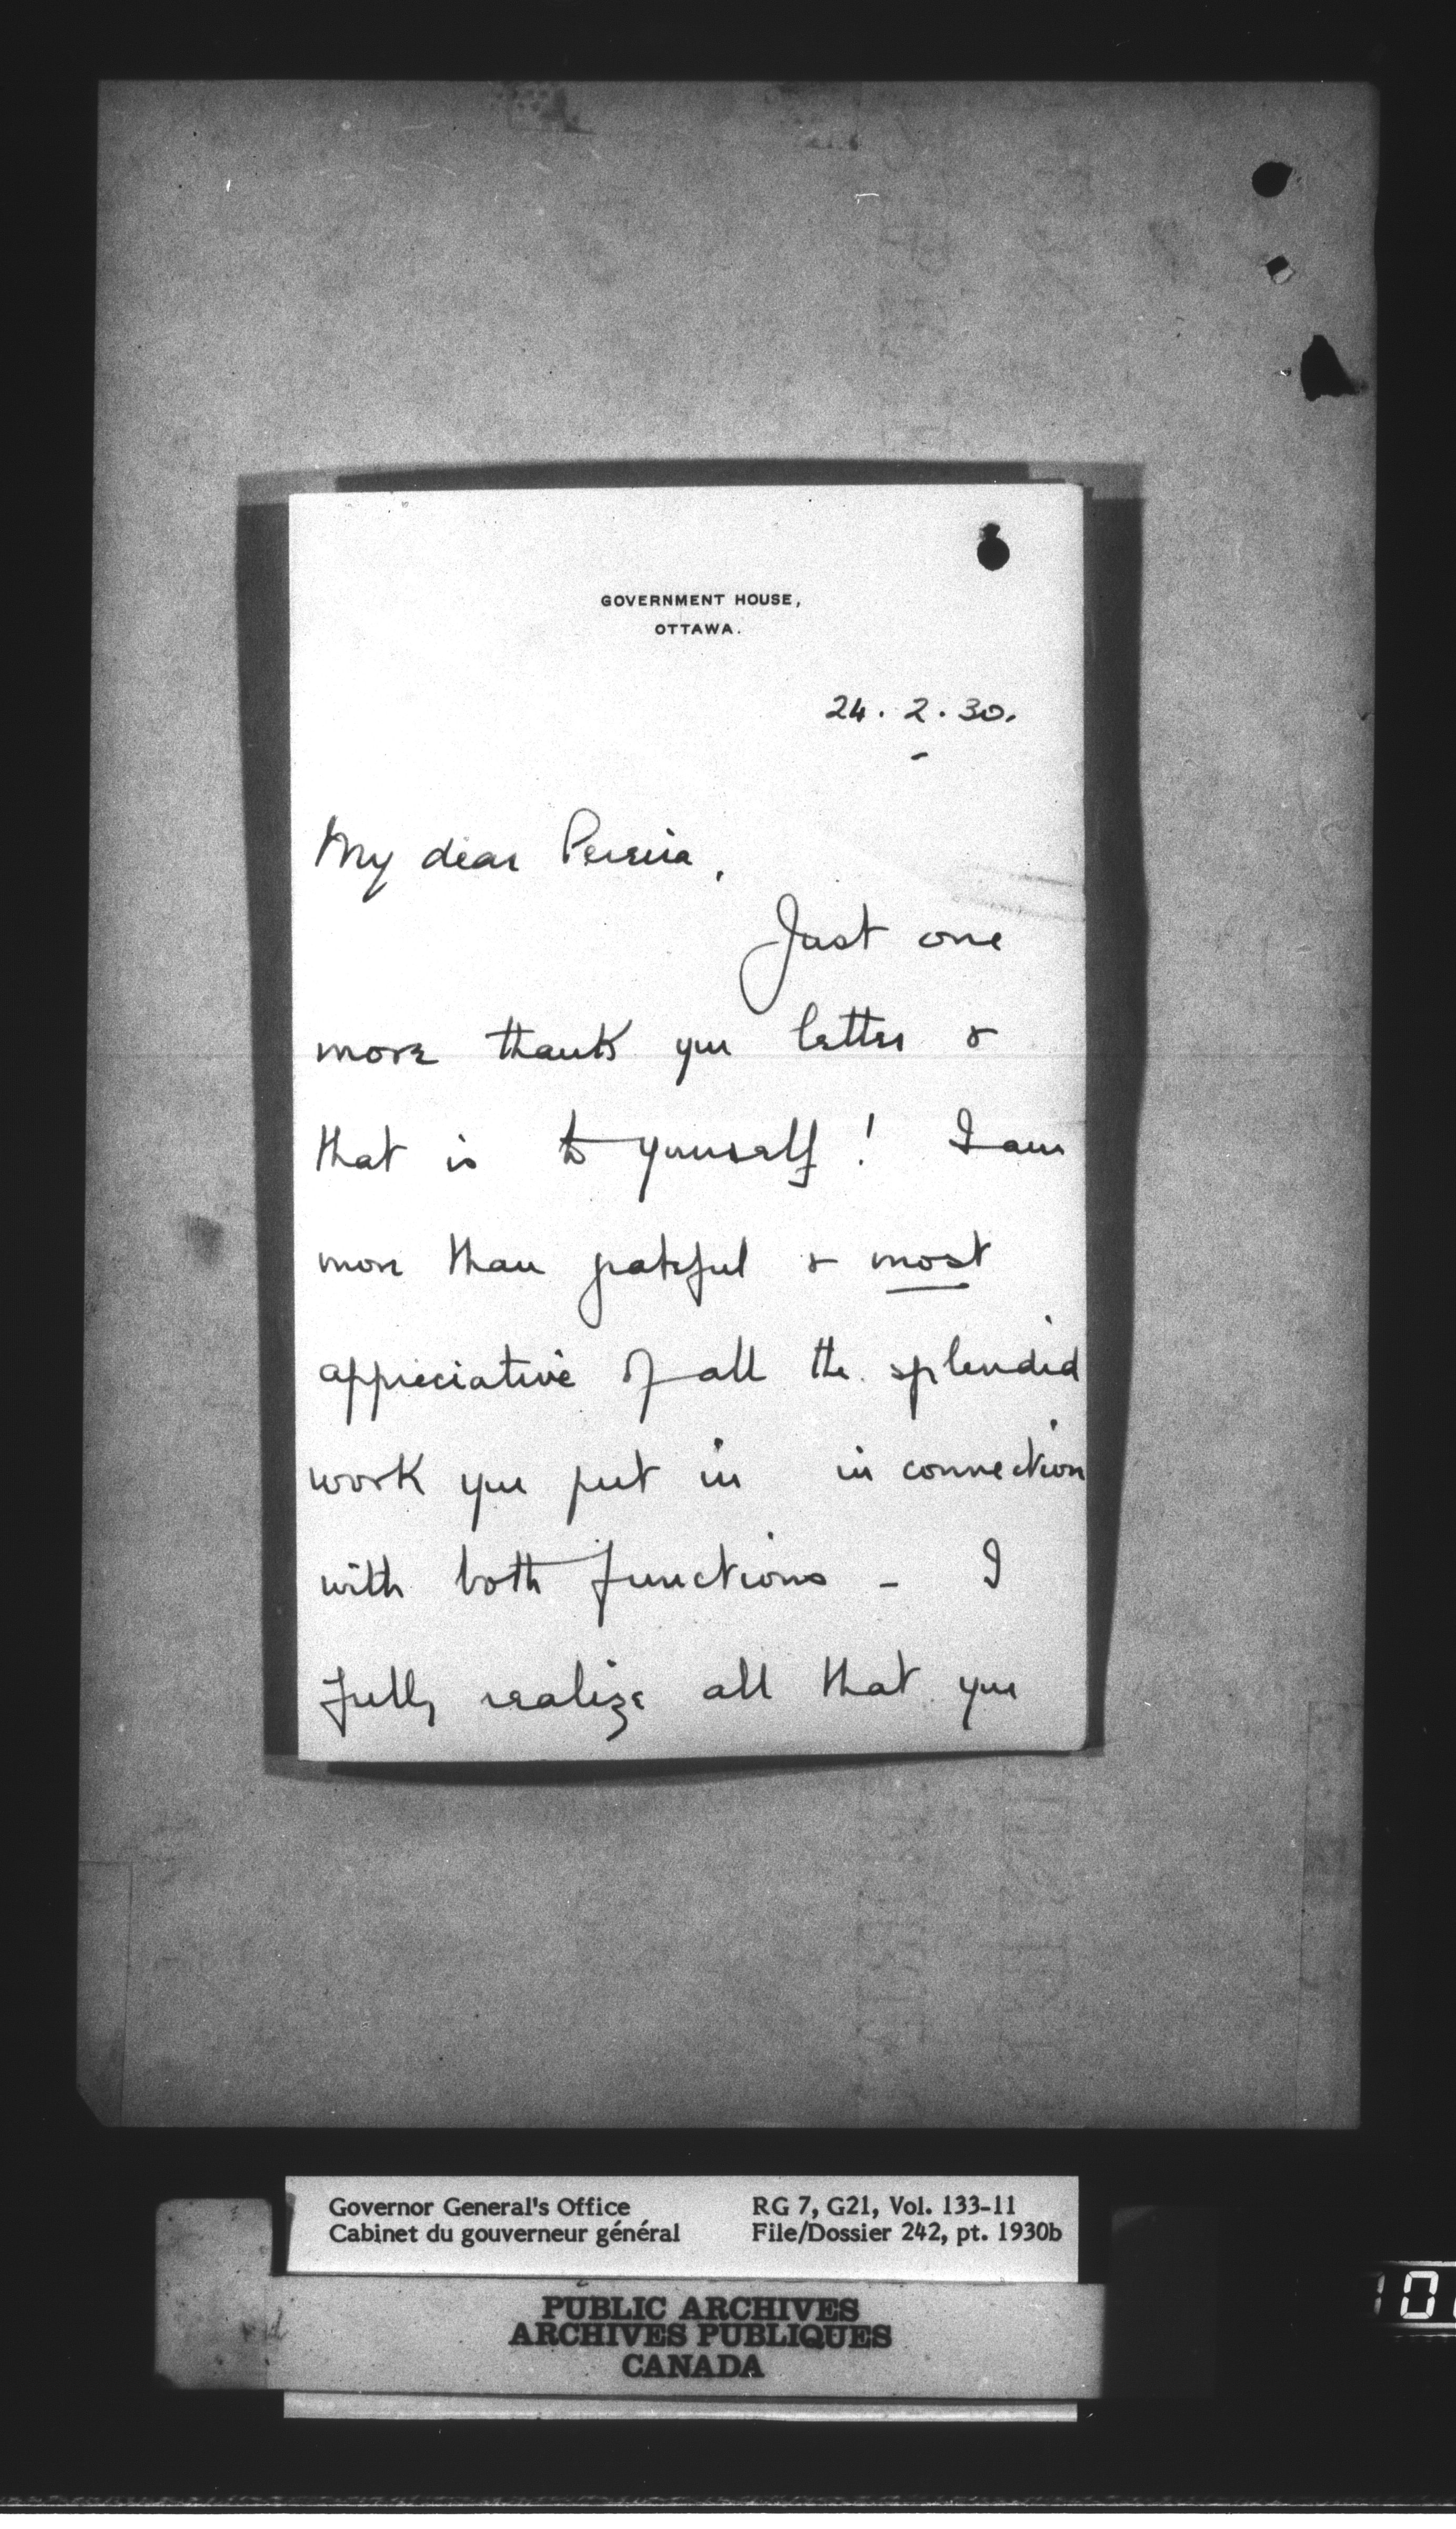 GOVERNMENT HOUSE,
OTTAWA.
24. 2. 30.
My dear Pereira,
Just one
more thank you letter &
that is to yourself! I am
more than grateful & most
appreciative of all the splendid
work you put in in connection
with both functions – I
fully realize all that you
Governor General's Office RG 7, G21, Vol. 133-11
Cabinet du gouverneur général File/Dossier 242, pt. 1930b
PUBLIC ARCHIVES
ARCHIVES PUBLIQUES
CANADA